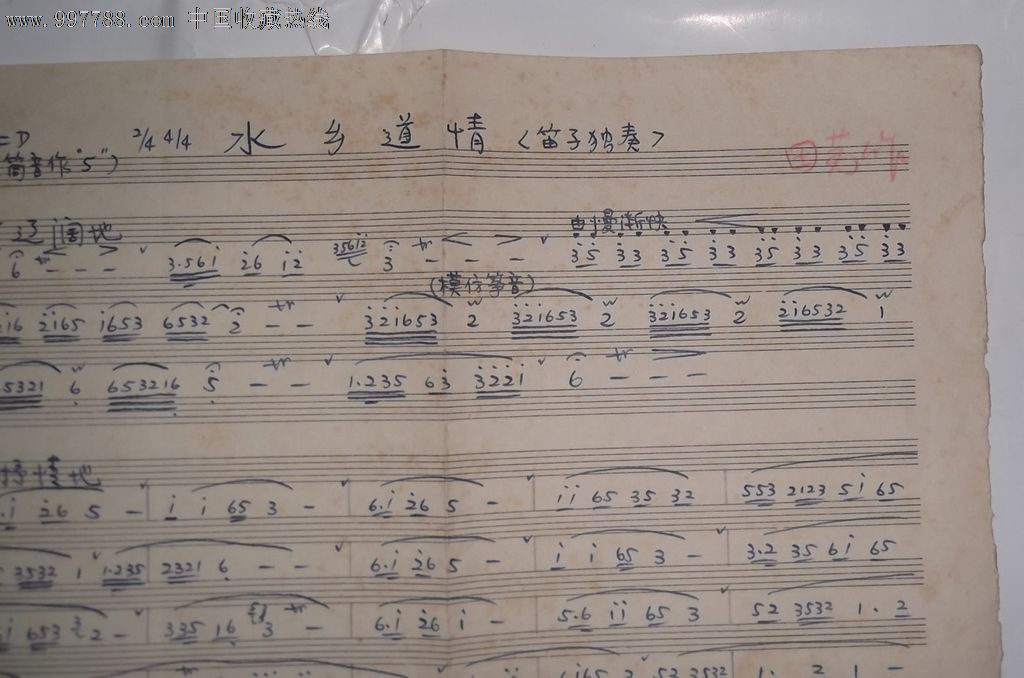 www.997788.com 中国收藏热线
=D 2/4 4/4 水乡道情 <笛子独奏>
筒音作"5")
辽阔地
由慢渐快
6 tr - - - 3.561 26 12 35612 3 tr - - - 35 33 35 33 35 33 35 33
(模仿筝音)
216 2165 1653 6532 2 - - tr 321653 2 321653 2 321653 2 216532 1
65321 6 653216 5 - - tr 1.235 63 3221 6 - tr - -
抒情地
.1 26 5 - | 1 1 65 3 - | 6.1 26 5 - | 11 65 35 32 | 553 2123 51 65
3532 1 1.235 | 2321 6 - - | 6.1 26 5 - | 1 1 65 3 - | 3.2 35 61 65
1 653 2 - | 335 16 3 tr - | 6.1 26 1 - | 5.6 11 65 3 | 52 3532 1. 2
1. 2 1 -